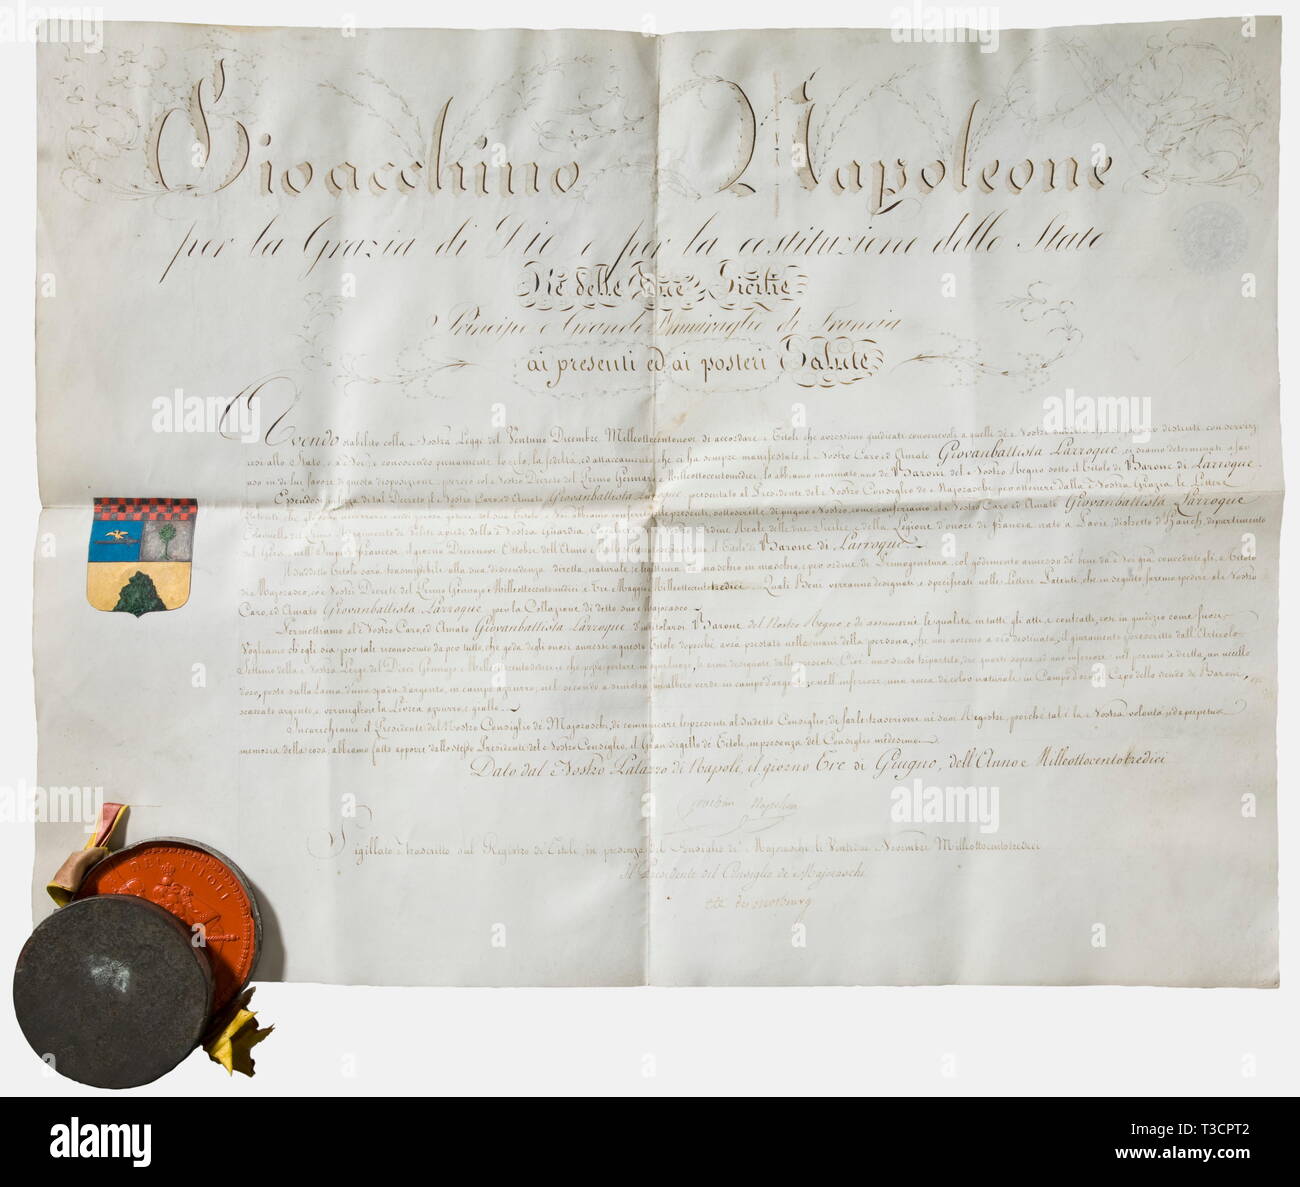 Gioacchino Napoleone
per la Grazia di Dio e per la costituzione dello Stato
Rè delle Due Sicilie
Principe e Grande Ammiraglio di Francia
ai presenti ed ai posteri Salute
Avendo stabilito colla Nostra Legge del Ventuno Dicembre Milleottocentonove di accordare Titoli che avessimo giudicati convenevoli a quelli de' Nostri
resi allo Stato, ed a Noi; e conoscendo pienamente lo zelo, la fedeltà, ed attaccamento, che ci ha sempre manifestato il Nostro Caro, ed Amato Giovanbattista Larroque, ci siamo determinati a far
uso in di lui favore di questa disposizione; perciò col Nostro Decreto del Primo Gennajo Milleottocentoundici, lo abbiamo nominato uno de' Baroni del Nostro Regno sotto il titolo di Barone di Larroque.
Essendosi in forza di tal Decreto il Nostro Caro, ed Amato Giovanbattista Larroque presentato al Presidente del Nostro Consiglio de' Majoraschi per ottenere dalla Nostra Grazia le Lettere
Patenti che gli sono necessarie presenti, sottoscritte di pugno Nostro, come conferiamo al Nostro Caro, ed Amato Giovanbattista Larroque
Colonnello del Primo Reggimento de' Veliti a piedi della Nostra Guardia Ordine Reale delle due Sicilie, e della Legione d'onore di Francia, nato a distretto d'Hauch, dipartimento
del Gers, nell'Impero Francese il giorno Diecinove Ottobre dell'Anno il titolo di Barone di Larroque.
Il suddetto titolo sarà trasmissibile alla sua discendenza diretta, naturale, legittima di maschio in maschio, per ordine di Primogenitura, col godimento annesso de' beni da Noi già concedutigli a titolo
di Majorasco, co' Nostri Decreti del Primo Gennajo Milleottocentoundici, e Tre Maggio Milleottocentotredici. Quali Beni verranno designati e specificati nelle Lettere Patenti, che in seguito faremo spedire al Nostro
Caro, ed Amato Giovanbattista Larroque per la Collazione di detto suo Majorasco.
Permettiamo al Nostro Caro, ed Amato Giovanbattista Larroque d'intitolarsi Barone del Nostro Regno, e di assumerne le qualità in tutti gli atti, e contratti, così in giudizio come fuori.
Vogliamo ch'egli sia per tale riconosciuto da per tutto, che goda degli onori annessi a questo titolo dopochè avrà prestato nelle mani della persona, che noi avremo a ciò destinata, il giuramento prescritto dall'Articolo
Settimo della Nostra Legge del Dieci Gennajo e che possa portare in ogni luogo le armi designate dalle presenti. Cioè: uno scudo tripartito, due quarti sopra, ed uno inferiore: nel primo a dritta, un uccello
d'oro, posto sulla lama d'una spada d'argento, in campo azzurro; nel secondo a sinistra un albero verde in campo d'argento; e nell'inferiore una rocca di color naturale in Campo d'oro; il Capo dello scudo de' Baroni,
scaccato argento, e vermiglio; e la Livrea azzurra, e gialla.
Incarichiamo il Presidente del Nostro Consiglio de' Majoraschi, di comunicare le presenti al suddetto Consiglio, di farle trascrivere ne' suoi Registri, perchè tal'è la Nostra volontà; ed a perpetua
memoria della cosa, abbiamo fatto apporre dallo stesso Presidente del Nostro Consiglio, il Gran Sigillo de' Titoli, in presenza del Consiglio medesimo.
Dato dal Nostro Palazzo di Napoli, il giorno Tre di Giugno, dell'Anno Milleottocentotredici
Joachim Napoleon
Sigillato e trascritto sul Registro de' Titoli, in presenza del Consiglio de' Majoraschi li Ventidue Novembre Milleottocentotredici
Il Presidente del Consiglio de' Majoraschi
a
alamy
alamy
Image ID: T3CPT2
www.alamy.com